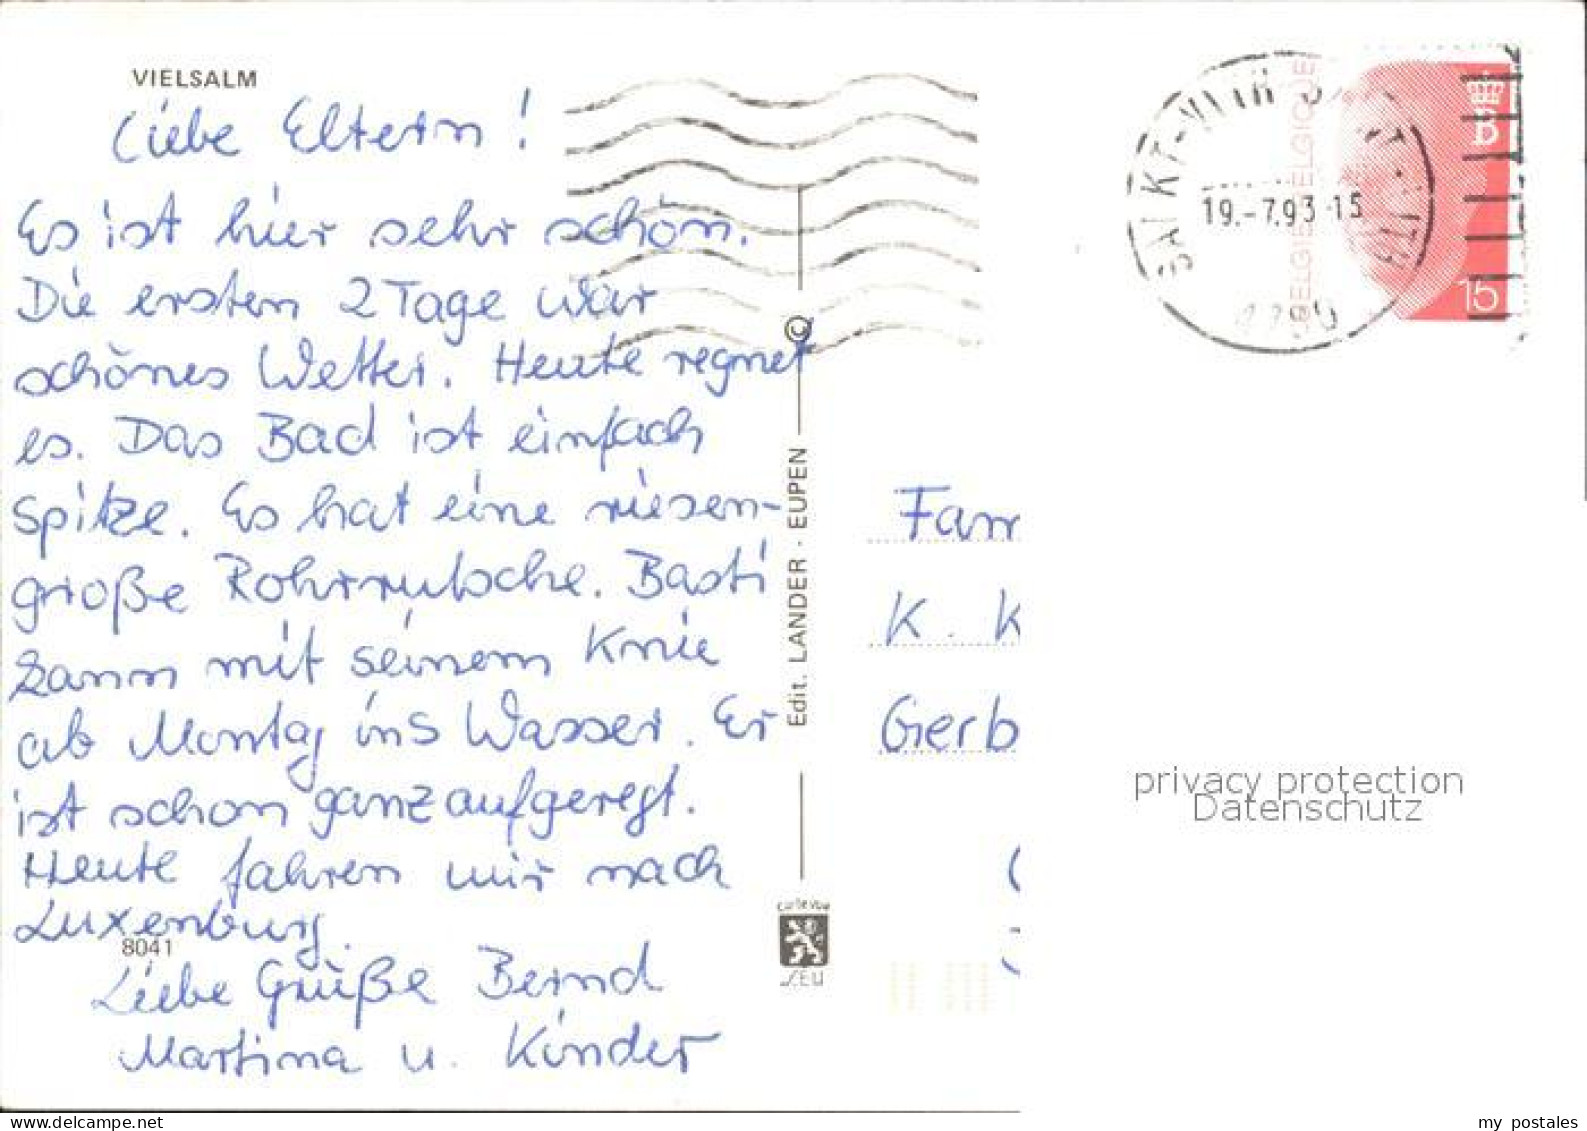 VIELSALM
Liebe Eltern!
Es ist hier sehr schön.
Die ersten 2 Tage war
schönes Wetter. Heute regnet
es. Das Bad ist einfach
Spitze. Es hat eine riesen-
große Rohrrutsche. Basti
kann mit seinem Knie
ab Montag ins Wasser. Er
ist schon ganz aufgeregt.
Heute fahren wir nach
Luxenburg.
8041
Liebe Grüße Bernd
Martina u. Kinder
©
Edit. LANDER · EUPEN
carte vue
LEU
BELGIE BELGIQUE
B
15
19.-7.93-15
SANKT-VITH
Fam
K. K
Gerb
privacy protection
Datenschutz
my postales